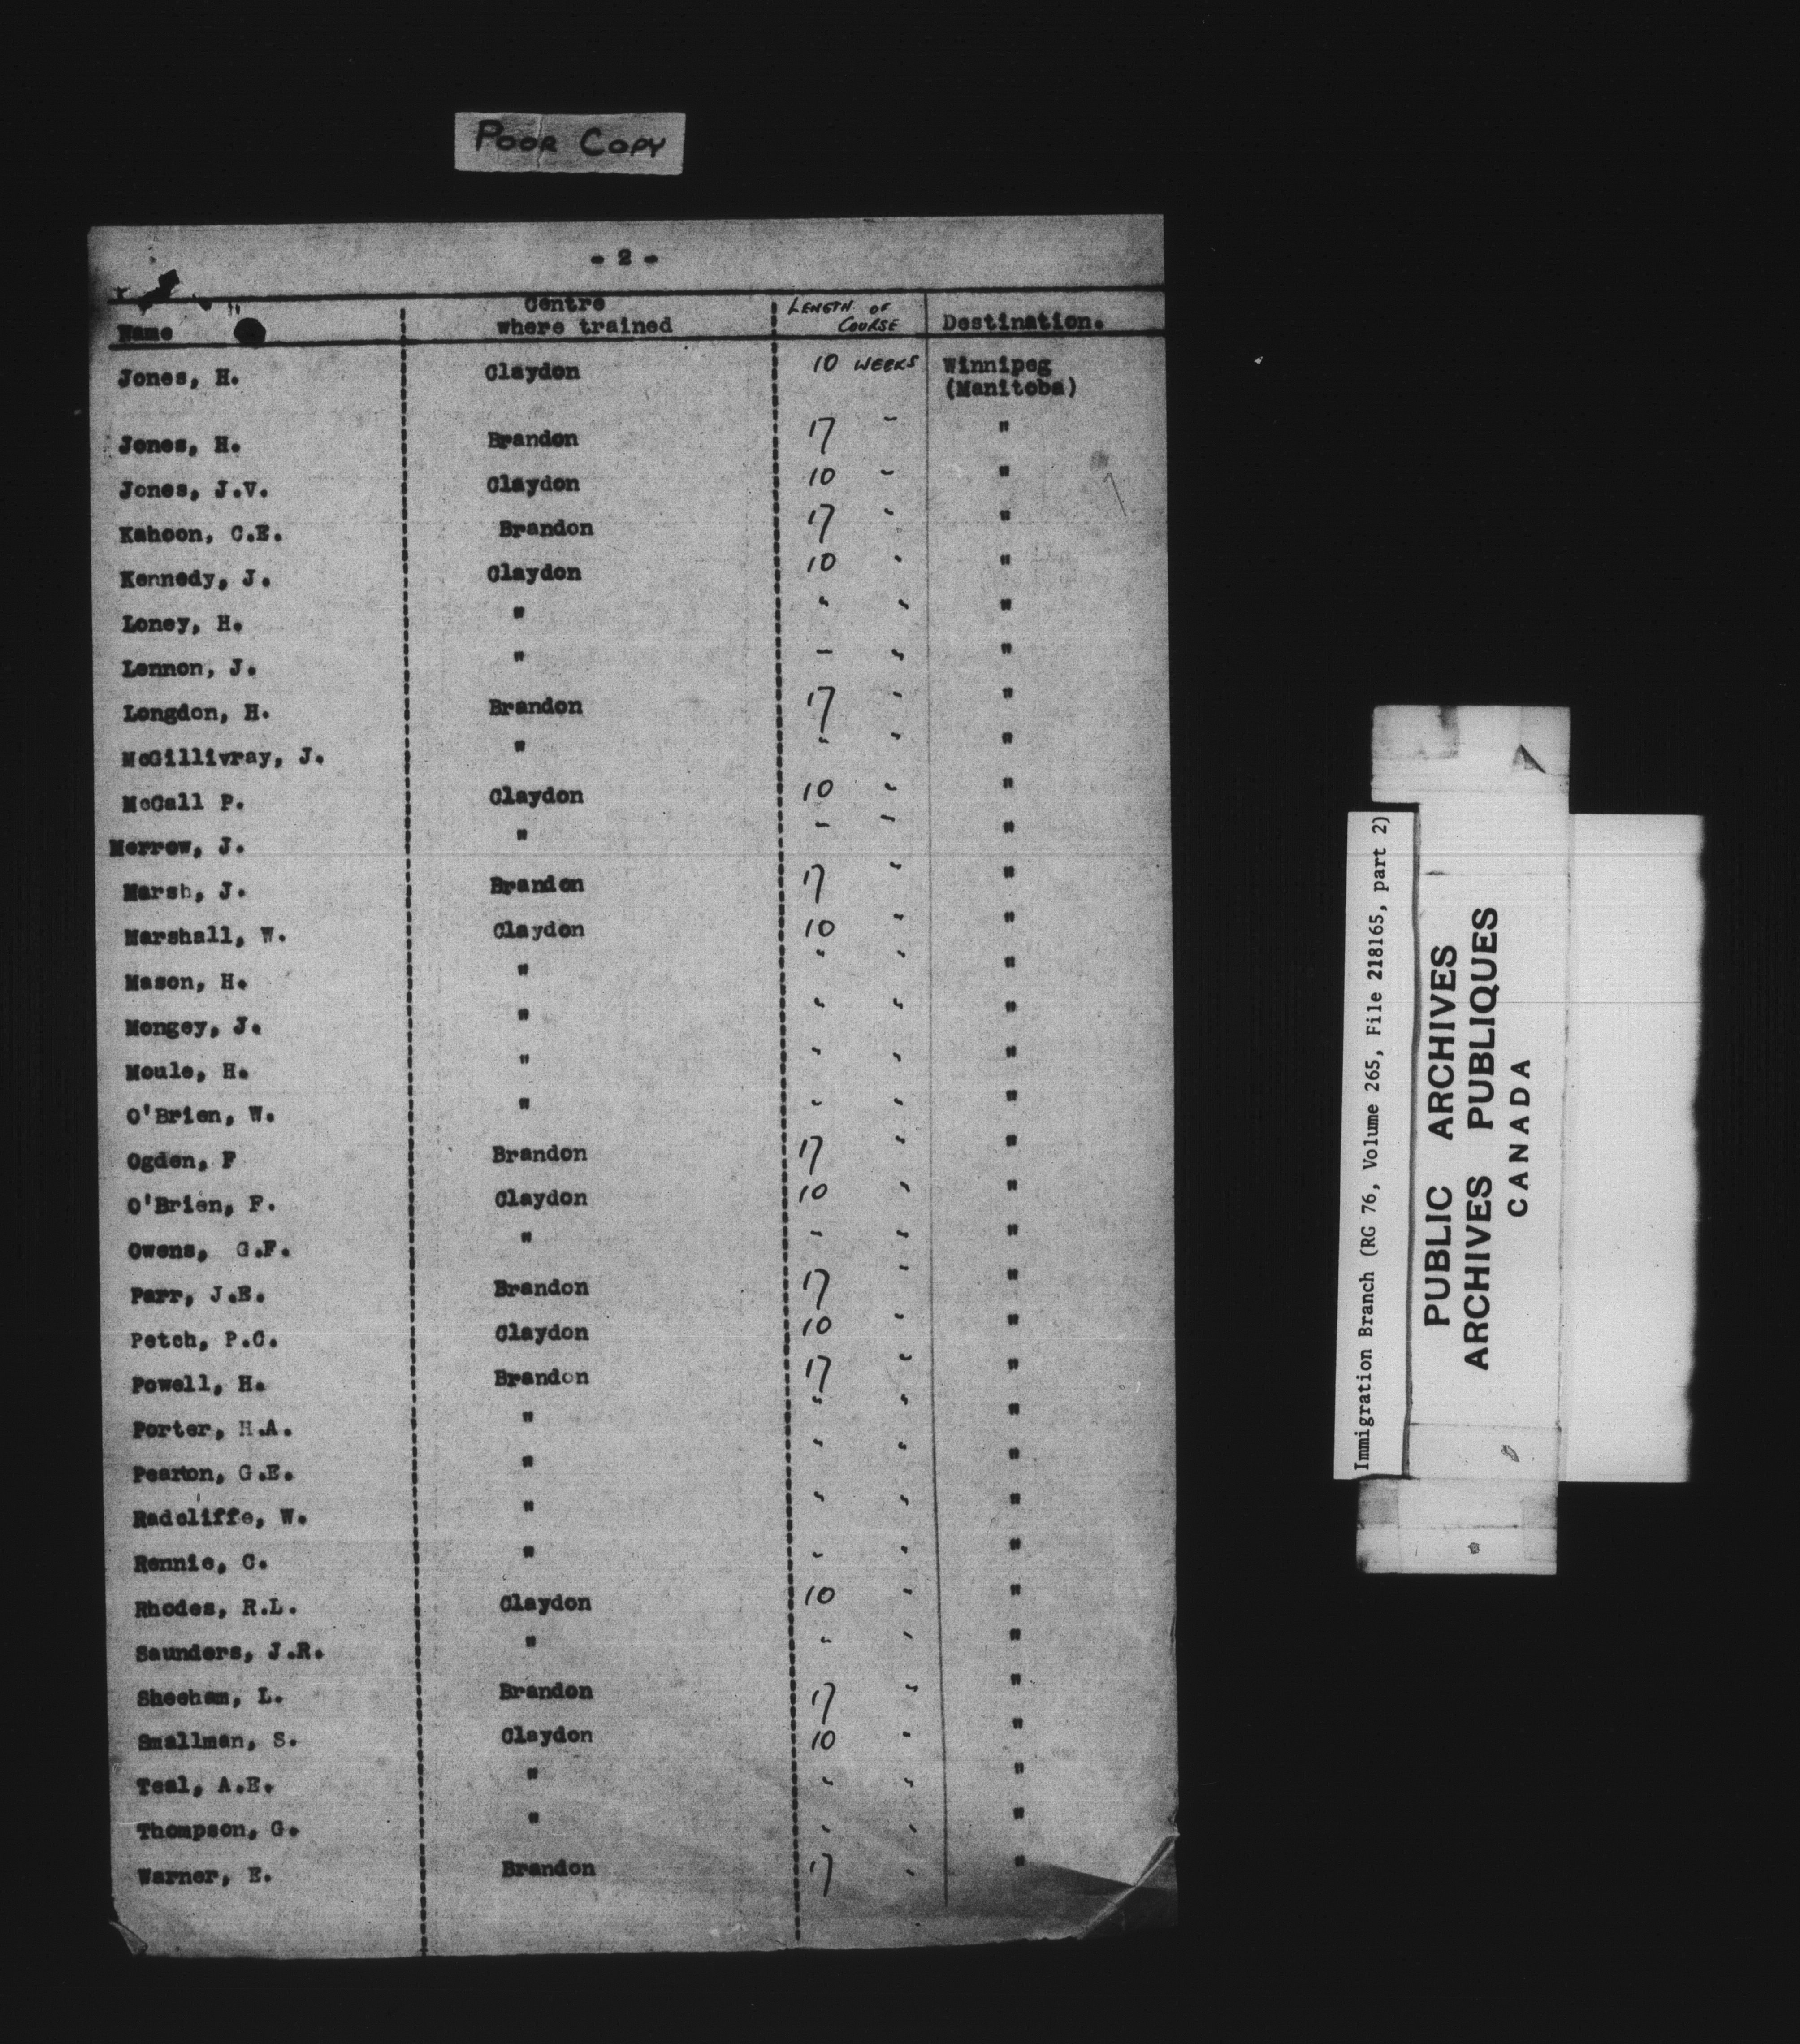 POOR COPY
- 2 -
Name Centre where trained LENGTH OF COURSE Destination.
Jones, H. Claydon 10 WEEKS Winnipeg (Manitoba)
Jones, H. Brandon 17 " "
Jones, J.V. Claydon 10 " "
Kahoon, C.E. Brandon 17 " "
Kennedy, J. Claydon 10 " "
Loney, H. " " " "
Lennon, J. " " " "
Longdon, H. Brandon 17 " "
McGillivray, J. " " " "
McCall P. Claydon 10 " "
Merrow, J. " " " "
Marsh, J. Brandon 17 " "
Marshall, W. Claydon 10 " "
Mason, H. " " " "
Mongey, J. " " " "
Moule, H. " " " "
O'Brien, W. " " " "
Ogden, F Brandon 17 " "
O'Brien, F. Claydon 10 " "
Owens, G.F. " " " "
Parr, J.E. Brandon 17 " "
Petch, P.C. Claydon 10 " "
Powell, H. Brandon 17 " "
Porter, H.A. " " " "
Pearton, G.E. " " " "
Radcliffe, W. " " " "
Rennie, C. " " " "
Rhodes, R.L. Claydon 10 " "
Saunders, J.R. " " " "
Sheeham, L. Brandon 17 " "
Smallman, S. Claydon 10 " "
Teal, A.E. " " " "
Thompson, G. " " " "
Warner, E. Brandon 17 " "
Immigration Branch (RG 76, Volume 265, File 218165, part 2)
PUBLIC ARCHIVES
ARCHIVES PUBLIQUES
CANADA